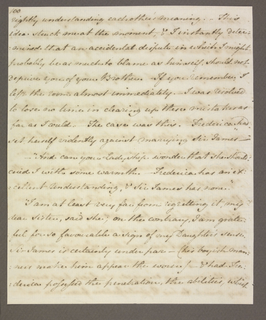 rightly understanding each other's meaning. This
idea struck me at the moment, & I instantly deter-
mined that an accidental dispute in which I might
probably be as much to blame as himself, should not
deprive you of your Brother. If you remember, I
left the room almost immediately. I was resolved
to lose no time in clearing up those mistakes as
far as I could. The case was this. Frederica had
set herself violently against marrying Sir James—
—And can your Ladyship wonder that she should?
cried I with some warmth. Frederica has an ex-
cellent Understanding, & Sir James has none.
I am at least very far from regretting it, my
dear Sister, said she; on the contrary, I am grate-
ful for so favourable a sign of my Daughter's sense.
Sir James is certainly under par — (his boyish man-
ners make him appear the worse) — & had Fre-
derica possessed the penetration, the abilities, which